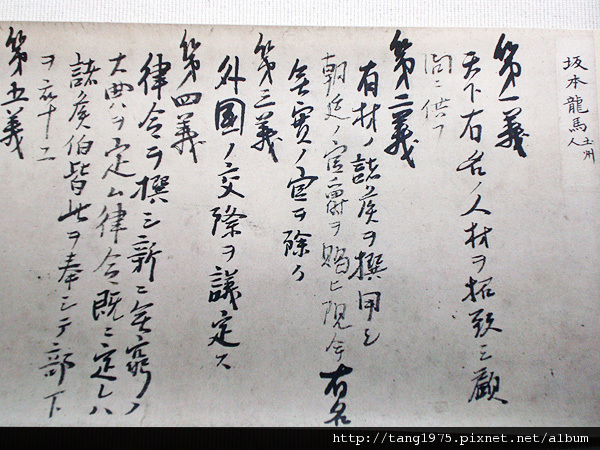 坂本龍馬 土州人
第一義
天下有名ノ人材ヲ招致シ顧
問ニ供フ
第二義
有材ノ諸侯ヲ撰用シ
朝廷ノ官爵ヲ賜ヒ現今有名
無實ノ官ヲ除ク
第三義
外國ノ交際ヲ議定ス
第四義
律令ヲ撰シ新ニ無窮ノ
大典ヲ定ム律令既ニ定レハ
諸侯伯皆此ヲ奉シテ部下
ヲ卒ユ
第五義
http://tang1975.pixnet.net/album